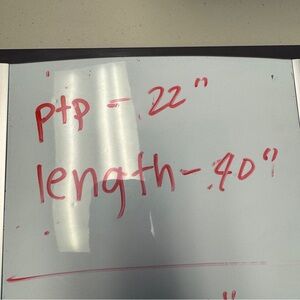 ptp - 22"
length - 40"